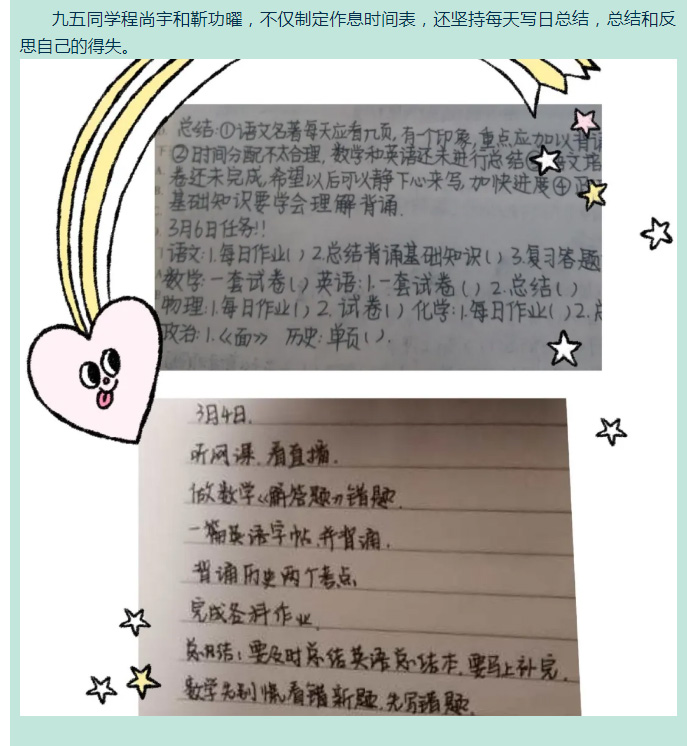 九五同学程尚宇和靳功曜，不仅制定作息时间表，还坚持每天写日总结，总结和反
思自己的得失。
总结:①语文名著每天应看几页,有个印象,重点应加以背诵
②时间分配不太合理,数学和英语还未进行总结 语文培
卷还未完成,希望以后可以静下心来写,加快进度④
基础知识要学会理解背诵.
3月6日任务!!
语文:1.每日作业( ) 2.总结背诵基础知识( ) 3.复习答题
数学:一套试卷( ) 英语:1.一套试卷( ) 2.总结( )
物理:1.每日作业( ) 2.试卷( ) 化学:1.每日作业( ) 2.总
政治:1.《面》 历史:单页( ).
3月4日.
听网课.看直播.
做数学《解答题》错题.
一篇英语字帖,并背诵.
背诵历史两个考点.
完成各科作业.
总结:要及时总结英语总结本,要马上补完.
数学先别慌看错新题,先写错题.